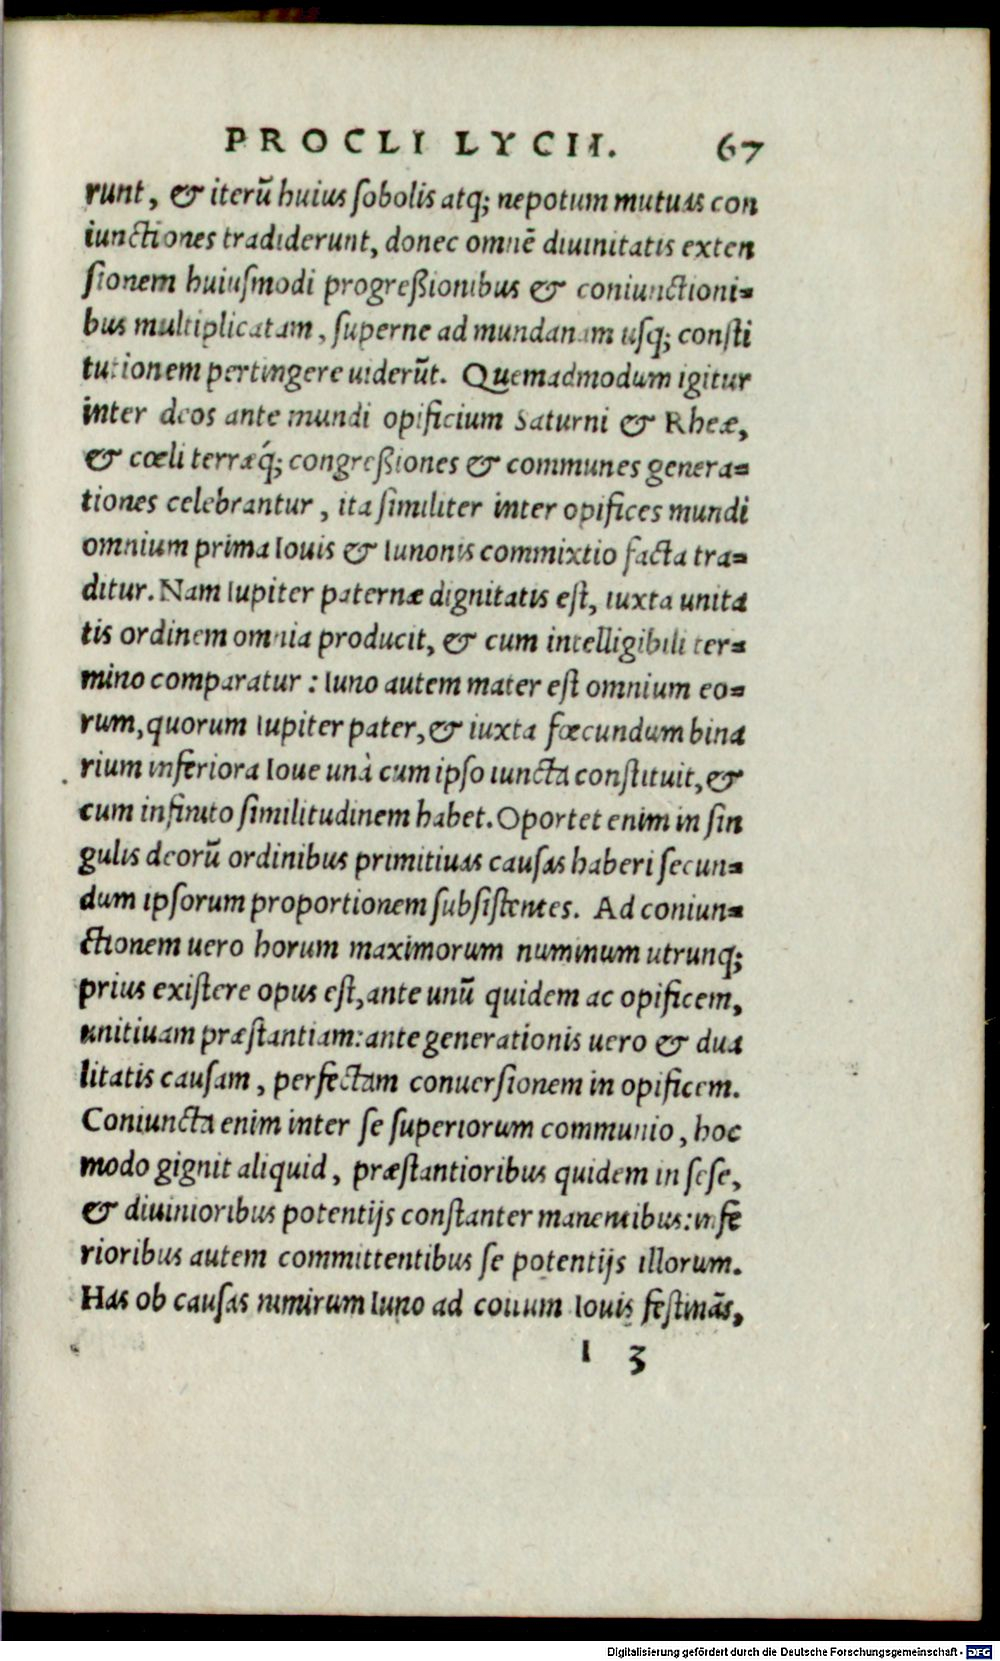 PROCLI LYCII. 67
runt, & iterū huius sobolis atq; nepotum mutuas con
iunctiones tradiderunt, donec omnē diuinitatis exten
sionem huiusmodi progreßionibus & coniunctioni-
bus multiplicatam, superne ad mundanam usq; consti
tutionem pertingere uiderūt. Quemadmodum igitur
inter deos ante mundi opificium Saturni & Rheæ,
& cœli terræq́; congreßiones & communes genera-
tiones celebrantur, ita similiter inter opifices mundi
omnium prima Iouis & Iunonis commixtio facta tra-
ditur. Nam Iupiter paternæ dignitatis est, iuxta unita
tis ordinem omnia producit, & cum intelligibili ter-
mino comparatur: Iuno autem mater est omnium eo-
rum, quorum Iupiter pater, & iuxta fœcundum bina
rium inferiora Ioue unà cum ipso iuncta constituit, &
cum infinito similitudinem habet. Oportet enim in sin
gulis deorū ordinibus primitiuas causas haberi secun-
dum ipsorum proportionem subsistentes. Ad coniun-
ctionem uero horum maximorum numinum utrunq;
prius existere opus est, ante unū quidem ac opificem,
unitiuam præstantiam: ante generationis uero & dua
litatis causam, perfectam conuersionem in opificem.
Coniuncta enim inter se superiorum communio, hoc
modo gignit aliquid, præstantioribus quidem in sese,
& diuinioribus potentijs constanter manentibus: infe
rioribus autem committentibus se potentijs illorum.
Has ob causas nimirum Iuno ad coitum Iouis festinās,
I 3
Digitalisierung gefördert durch die Deutsche Forschungsgemeinschaft - DFG